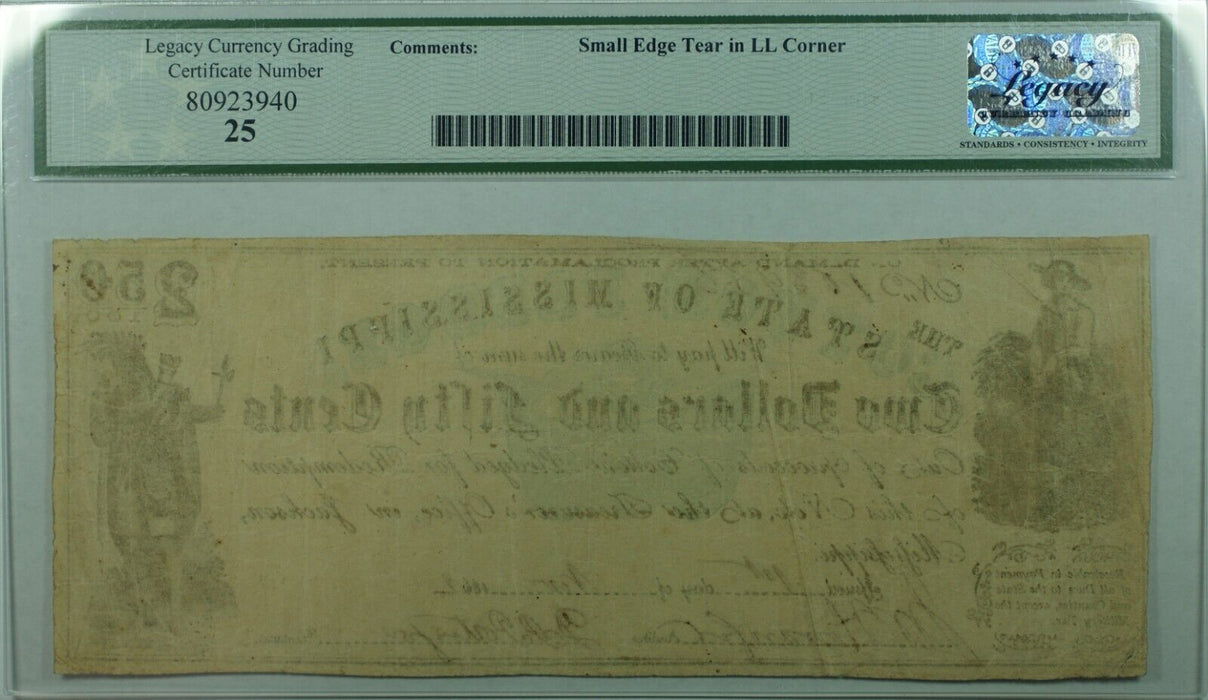 Legacy Currency Grading
Certificate Number
80923940
25
Comments:
Small Edge Tear in LL Corner
Legacy
CURRENCY GRADING
STANDARDS • CONSISTENCY • INTEGRITY
ON DEMAND AFTER PROCLAMATION TO PRESENT.
2 50
No.
THE STATE OF MISSISSIPPI
Will pay to Bearer the sum of
Two Dollars and Fifty Cents
Out of proceeds of Cotton Pledged for Redemption
of this Note, at the Treasurer's Office, in Jackson,
Mississippi.
Issued day of
Receivable in Payment
of all Dues to the State
and Counties, except the
Military Tax.